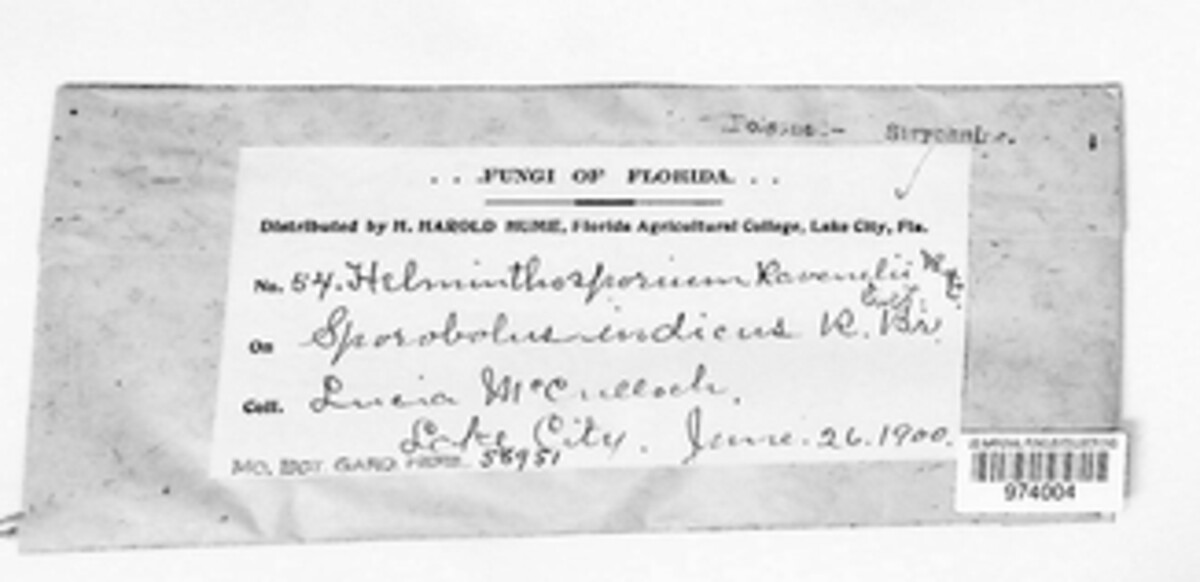 Poison:- Strychnine.
. . .FUNGI OF FLORIDA. . .
Distributed by H. HAROLD HUME, Florida Agricultural College, Lake City, Fla.
No. 54. Helminthosporium Ravenelii
On Sporobolus indicus R. Br.
Coll. Lucia McCulloch.
Lake City. June. 26. 1900.
MO. BOT. GARD. HERB. 58951
974004